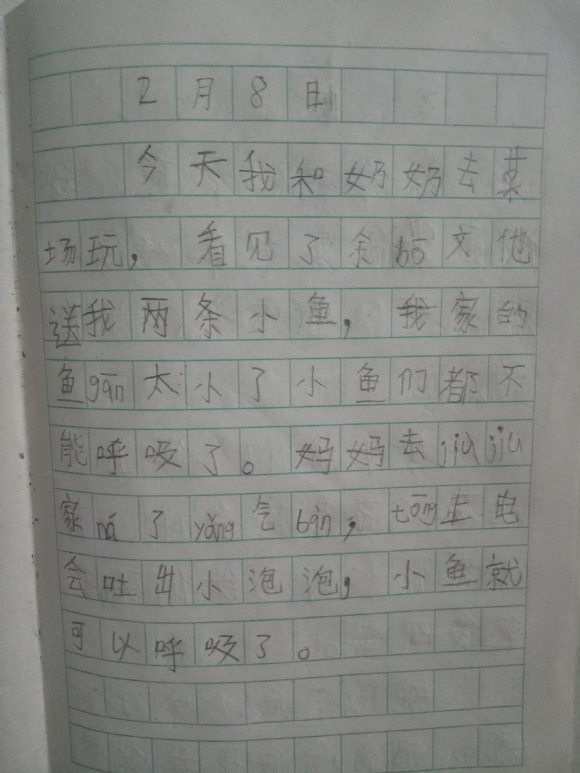 2月8日
今天我和奶奶去某
场玩，看见了余bō文他
送我两条小鱼，我家的
鱼gān太小了小鱼们都不
能呼吸了。妈妈去jiùjiu
家ná了yǎng气bàn，tōng上电
会吐出小泡泡，小鱼就
可以呼吸了。